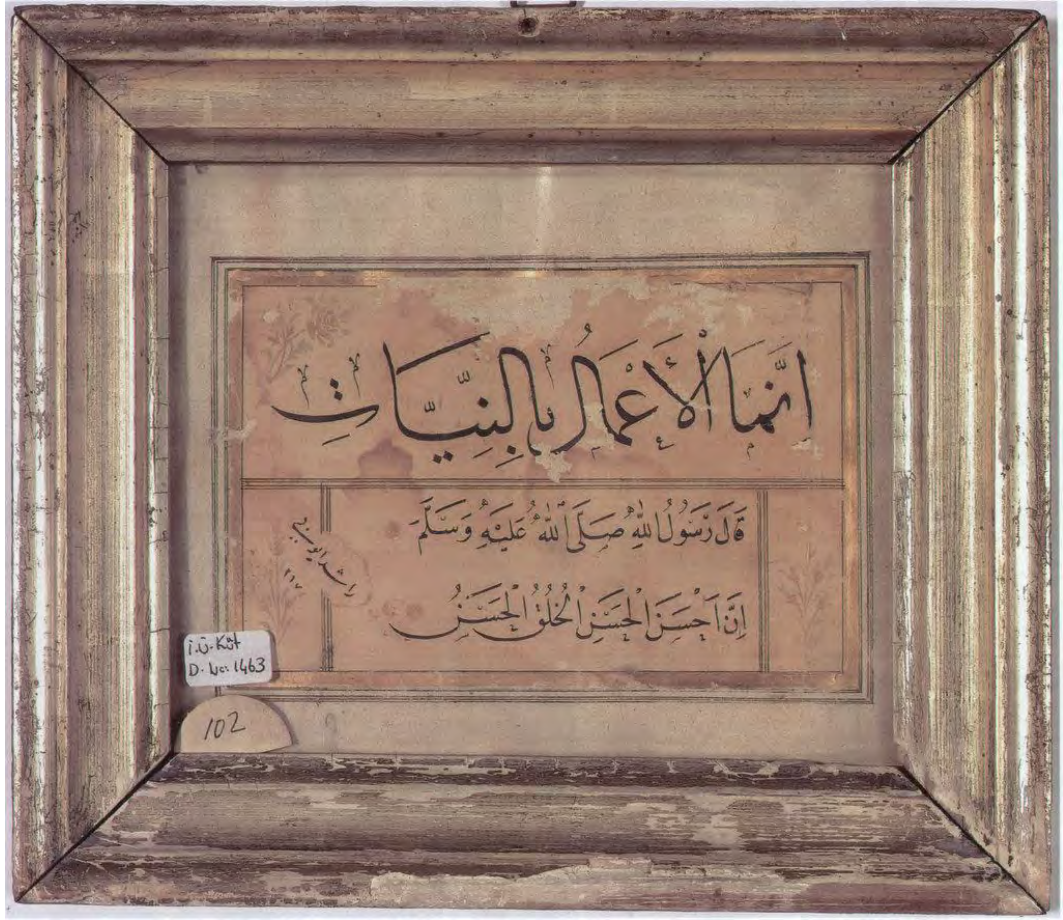 اِنَّمَا الْأَعْمَالُ بِالنِّيَّاتِ
قَالَ رَسُولُ اللهِ صَلَّى اللهُ عَلَيْهِ وَسَلَّمَ
اِنَّ اَحْسَنَ الْحَسَنِ الْخُلُقُ الْحَسَنُ
İ.Ü. Küt
D. No: 1463
102